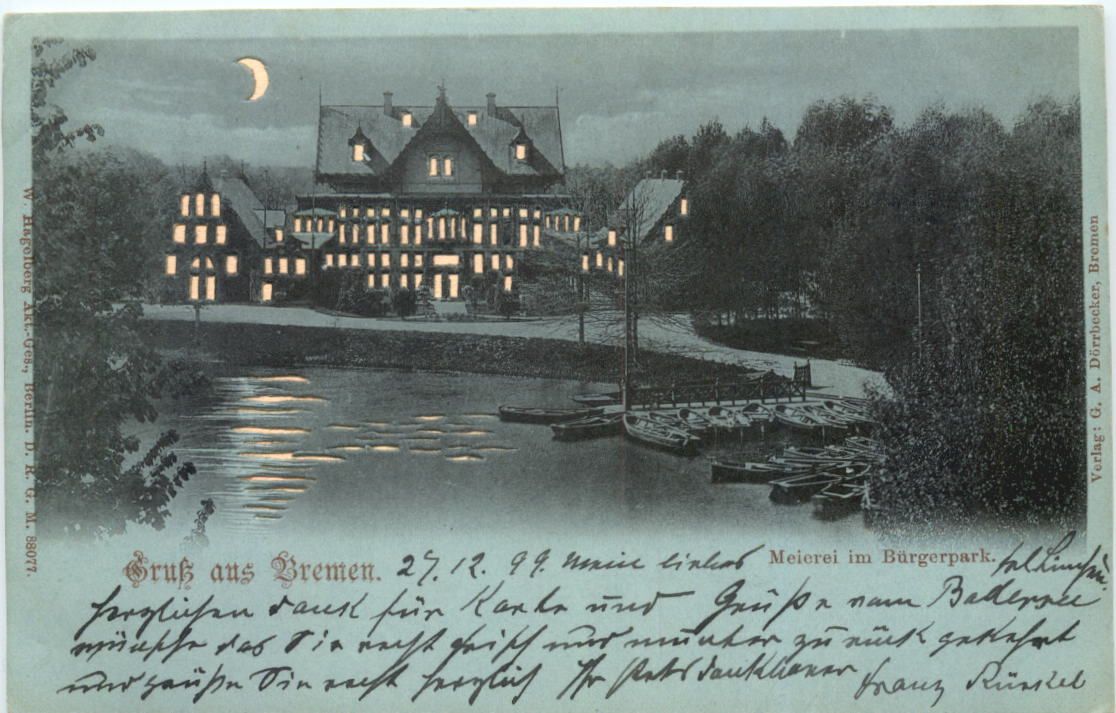 W. Hagelberg Akt.-Ges., Berlin. D. R. G. M. 88077.
Verlag: G. A. Dörrbecker, Bremen
Gruß aus Bremen.
Meierei im Bürgerpark.
27. 12. 99. Mein liebes
herzlichen dank für Karte und Grüße vom
wünsche das Sie recht frisch und munter zurück gekehrt
und grüße Sie recht herzlich Ihr stets dankbarer Franz